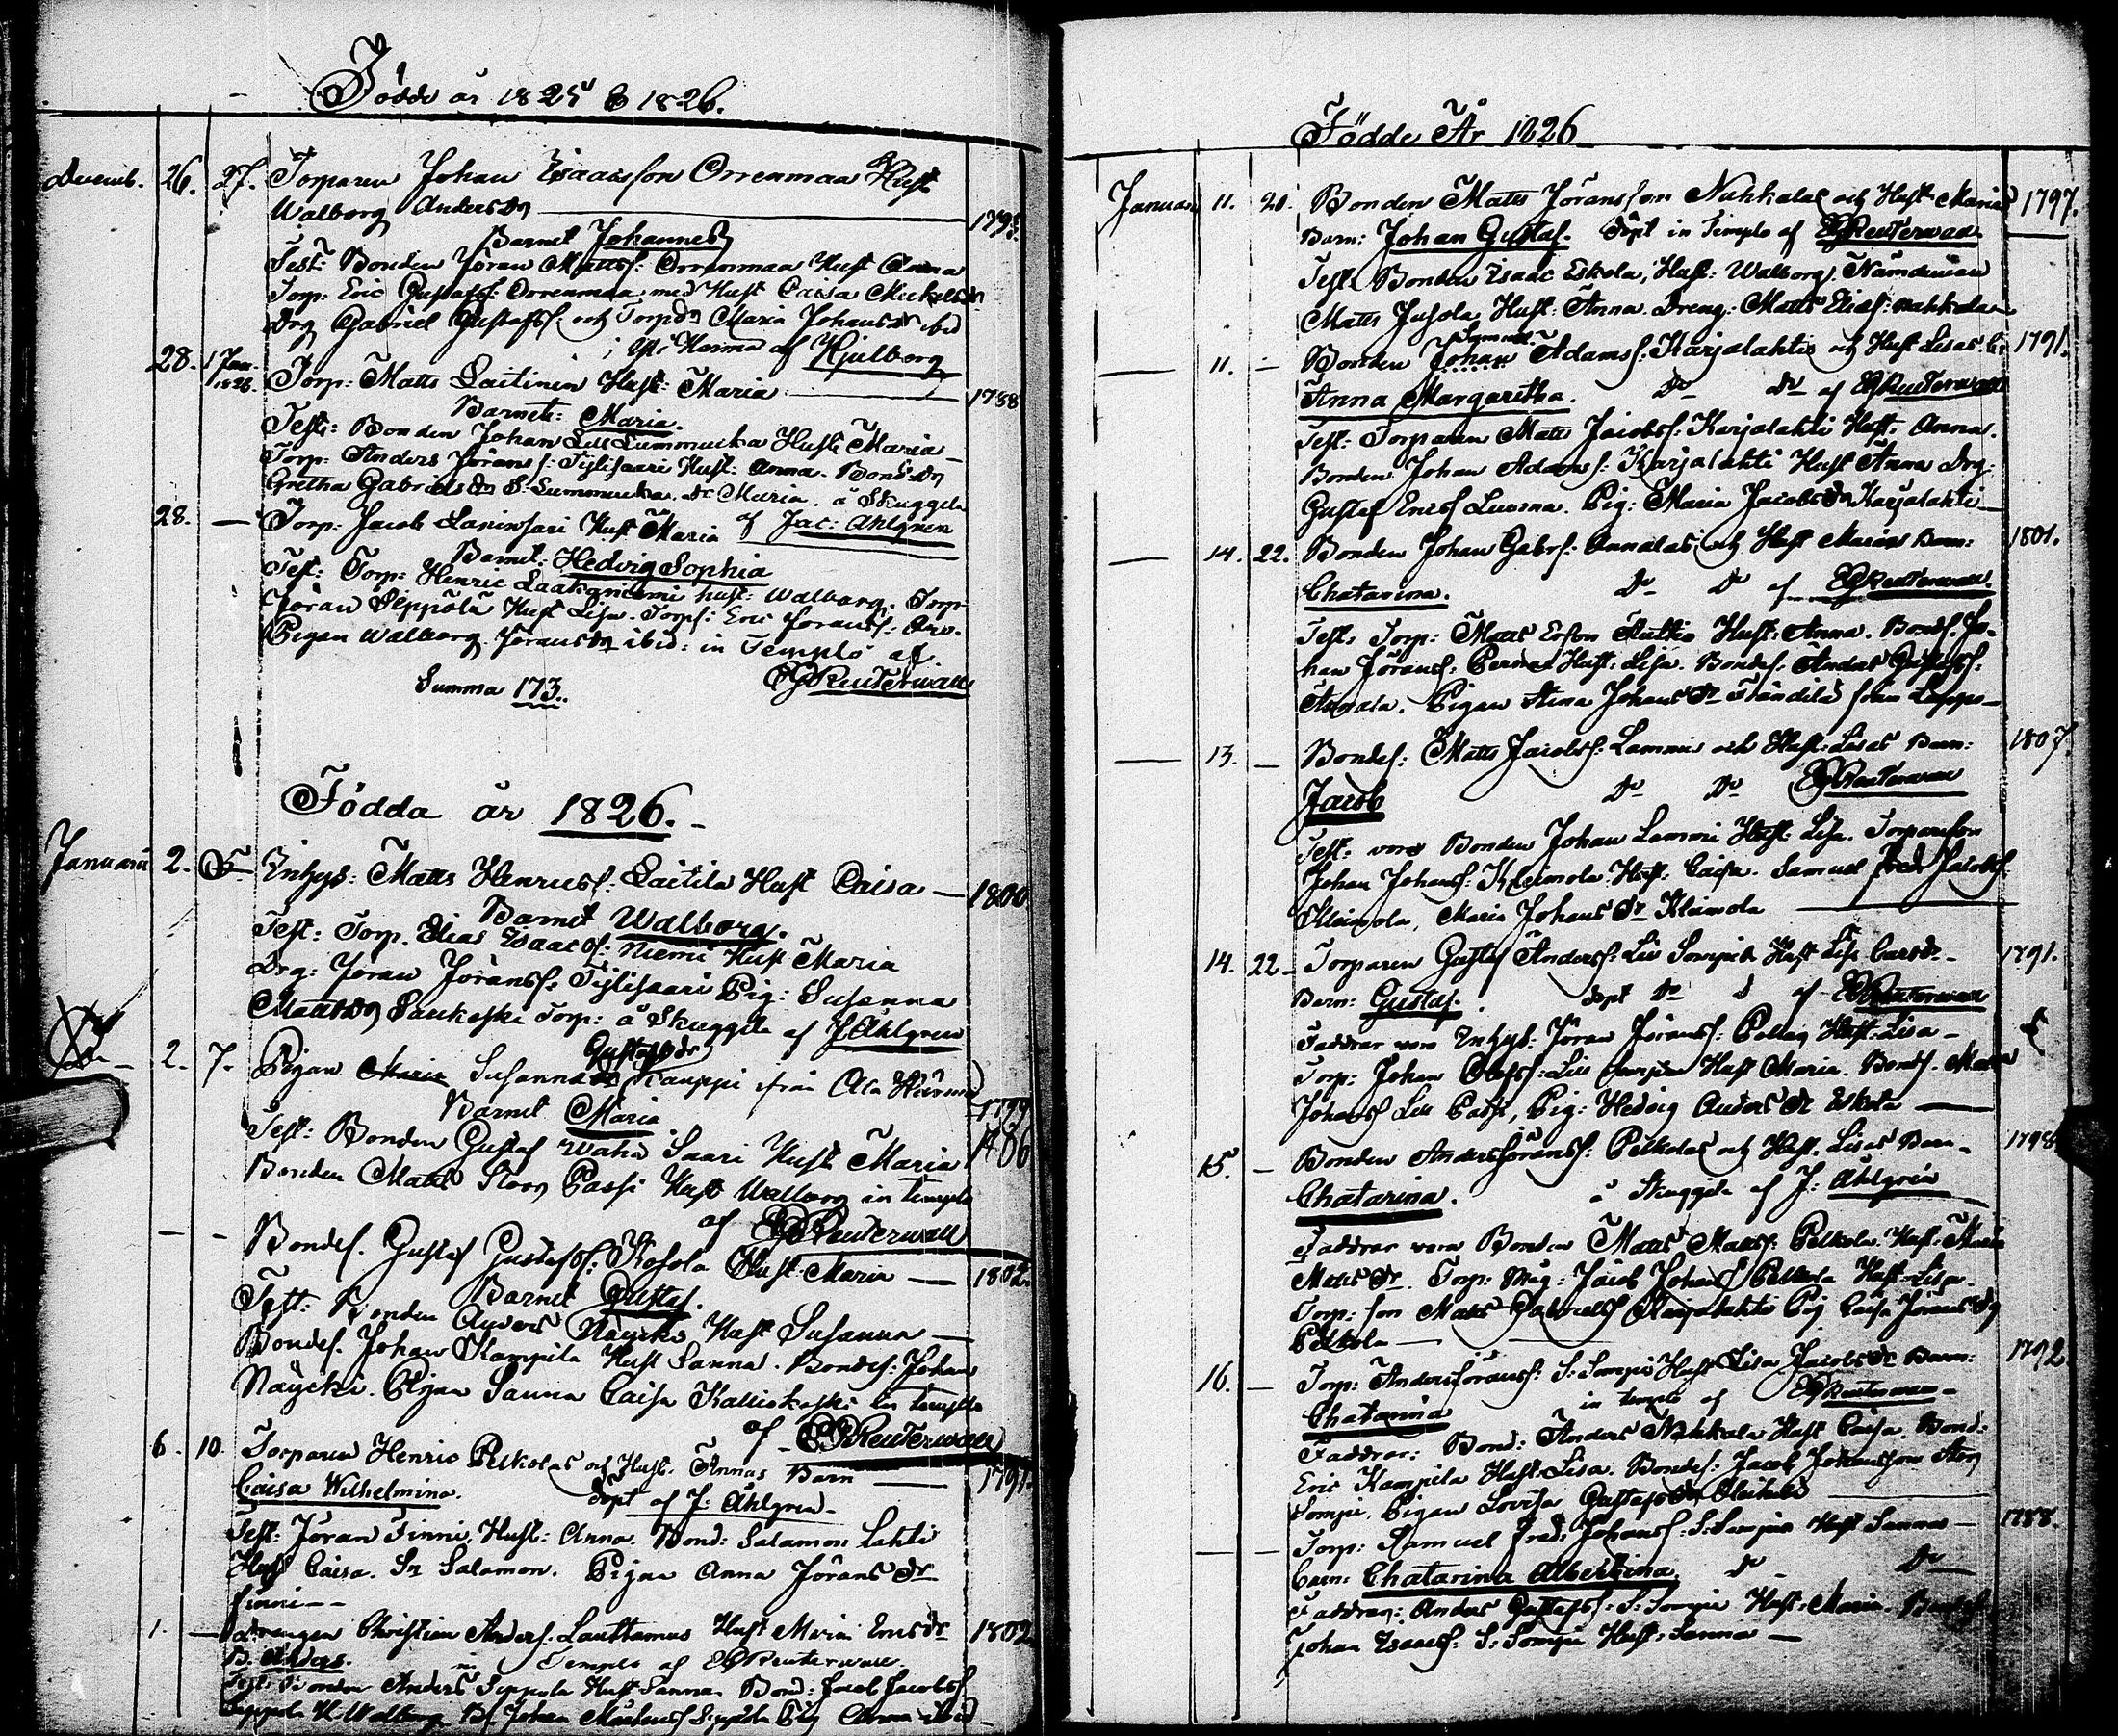 Födde år 1825 & 1826.
Decemb. 26. 27. Torparen Johan Isaacsson Orrenmaa Hust
Walborg Andersdr 1795.
Barnet Johannes
Test: Bonden Jöran Mattss: Orrenmaa Hust Anna
Torp: Eric Gustafss: Orrenmaa med Hust Caisa Mickelsdr
Drg Gabriel Gustafss: och Torpdr Maria Johansdr ibid
af Hjulborg
28. 1 Jan. 1826. Torp: Matts Laitinen Hust: Maria 1788
Barnet: Maria.
Test: Bonden Johan Lill Lummucka Hust: Maria
Torp: Anders Jöranss: Tylisaari Hust: Anna. Bondedr
Gretha Gabrielsdr S: Lummucka. Dr Maria. å Skuggila
28. — Torp: Jacob Hust Maria af Jac: Ahlgren
Barnet: Hedvig Sophia
Test: Torp: Henric Laakoniemi hust: Walborg. Torp
Jöran Seppölä Hust Lisa. Torps: Eric Jöranss:
Pigan Walborg Jöransdr ibid: in Templo af
Summa 173. Reuterwall
Födda år 1826.
Januarii 2. Inhys: Matts Henricss: Laitila Hust Caisa — 1800
Barnet Walborg.
Test: Torp. Elias Isaacss: Niemi Hust Maria
Drg: Jöran Jöranss: Tylisaari Pig: Susanna
Mattsdr Torp: å Skuggila af J Ahlgren
Gustafsdr
2. 7. Pigan Maria Susanna Kauppi ifrån Ala
Barnet Maria
Test: Bonden Gustaf Waha Saari Hust: Maria
Bonden Matts Storg Passi Hust Walborg in templo
af Reuterwall
— — Bondes. Gustaf Gustafss: Kosola Hust: Maria — 1802
Barnet Gustaf.
Test: Bonden Anders Näycki Hust Susanna —
Bondes. Johan Kampila Hust Sanna. Bondes: Johan
Näycki. Pigan Sanna Caisa Kalliokoski in templo
af Reuterwall
6. 10. Torparen Henric Pelkolas och Hust. Annas Barn 1791
Caisa Wilhelmina. Döpt af J: Ahlgren
Test: Jöran Finni, Hust: Anna. Bond: Salamon Lahti
Hust Caisa. Sr Salamon. Pigan Anna Jöransdr
finni
1. — Drengen Christian Anders. Lauttamus Hust Maria Ericsdr 1802
B. Anders. in Templo af Reuterwall.
Test: Bonden Anders Seppola Hust Sanna Bond: Jacob Jacobss
Seppola H Walborg
Födde År 1826
Januari 11. 20. Bonden Matts Jöransson Nahkalas och Hust Marias 1797.
Barn: Johan Gustaf. Döpt in Templo af Reuterwall
Test: Bonden Isaac Eskola, Hust: Walborg. Nämdeman
Matts Jusola Hust: Anna. Dreng: Matts Eliass: nahkala
Samuel
— 11. — Bonden Johan Adamss: Karjalahtis och Hust Lisas 1791.
Anna Margaretha. Do Do af Reuterwall
Test: Torparen Matts Jacobss: Karjalahti Hust Anna.
Bonden Johan Adams: Karjalahti Hust Anna Drg:
Gustaf Ericss Luoma. Pig: Maria Jacobsdr Karjalahti
— 14. 22. Bonden Johan Gabrs: Annalas och Hust Marias Barn: 1801.
Chatarina. Do Do af Reuterwall
Test: Torp: Matts Hust: Anna. Bonds. Jo-
han Jöranss: Hust: Lisa. Bondes. Anders Gustafss:
Annala. Pigan Stina Johansdr från Lappo
— 13. — Bondes: Matts Jacobss: Lammis och Hust: Lisas Barn: 1807.
Jacob Do Do Reuterwall
Test: voro Bonden Johan Lammi Hust: Lisa. Torpareson
Johan Johanss: Kleimola Hust. Caisa. Samuel Jacobss:
Kleimola, Maria Johansdr Kleimola
14. 22 Torparen Gustaf Anderss: Lill Sompi Hust Lisa 1791.
Barn: Gustaf. Döpt Do D af Reuterwall
Faddrar voro Inhys: Jöran Jöranss: Hust: Lisa —
Torp: Johan Olofss: Lill Sompi Hust Maria. Bonds. Matts
Johanss Lill Passi, Pig: Hedvig Andersdr Eskola
15. — Bonden Anders Jöranss: Pelkolas och Hust. Lisas Barn 1798.
Chatarina. å Skuggila af J: Ahlgren
Faddrar voro Bonden Matts Mattss: Pelkola. Hust: Maria
Mattsdr. Torp: Måg: Jacob Johanss Pelkola Hust Lisa.
Torp: son Matts Gabrielss Karjalahti Pig Caisa Jöransdr
Pelkola
16. — Torp: Anders Jöranss: S: Sompi Hust Lisa Jacobsdr Barn: 1792
Chatarina in templo af Reuterwall
Faddrar: Bond: Anders Nahkala Hust Caisa. Bond:
Eric Kampila Hust: Lisa. Bondes: Jacob Johansson Storg
Sompi, Pigan Lovisa Gustafsdr
— — Torp: Samuel Fred: Johanss: S: Sompis Hust Sannas — 1788.
Barn: Chatarina Albertina. Do Do
Faddrar: Anders Gustafss: S: Sompi Hust: Maria.
Johan Isaacss: S: Sompi Hust: Sanna —